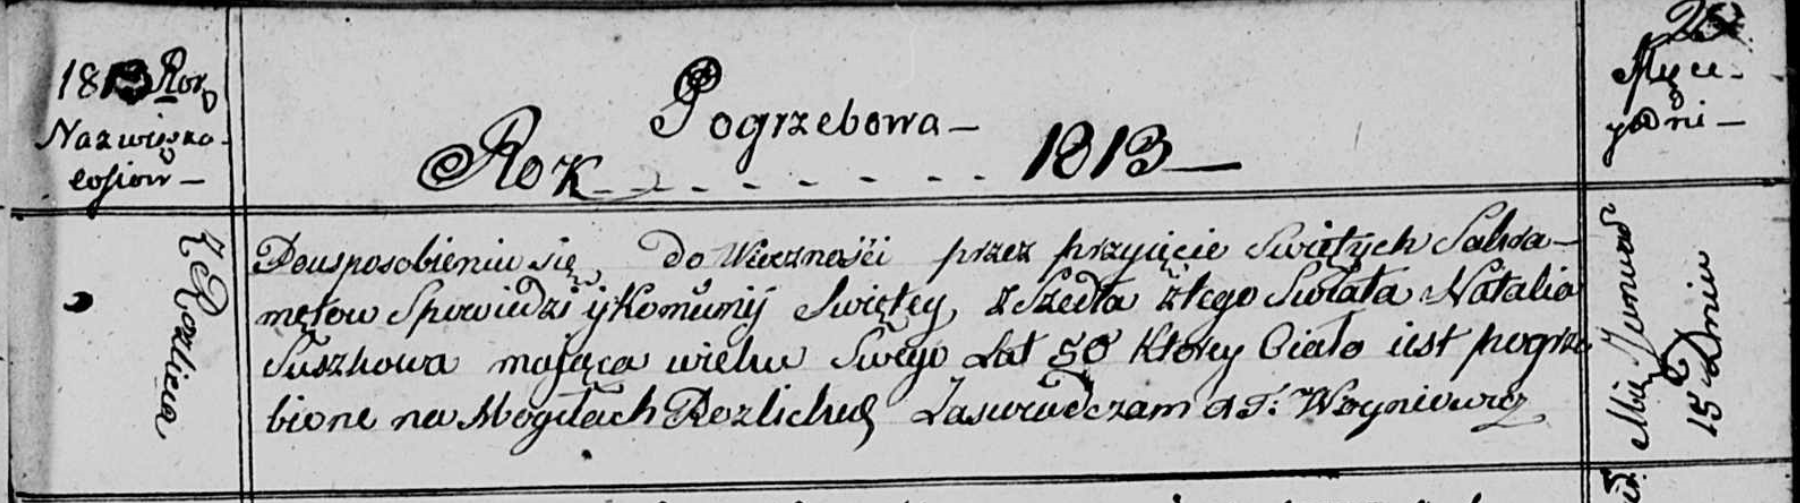 1813 Rok
Nazwiska
wsiow –
Pogrzebowa –
Rok - - - - - - - - 1813 –
Mce
y dni –
Z Rozlicza
Po usposobieniu się, do Wiecznosci przez przyięcie Swiętych Sakra-
mętow Spowiedzi y Komunij Swiętey, z Szedła z tego Swiata Natalia
Suszkowa mająca wieku Swego Lat 50 Ktorey Ciało iest pogrze
bione na Mogiłach Rozlickich Zaswiadczam X T: Woyniewicz
Mca Junuar
15 Dnia